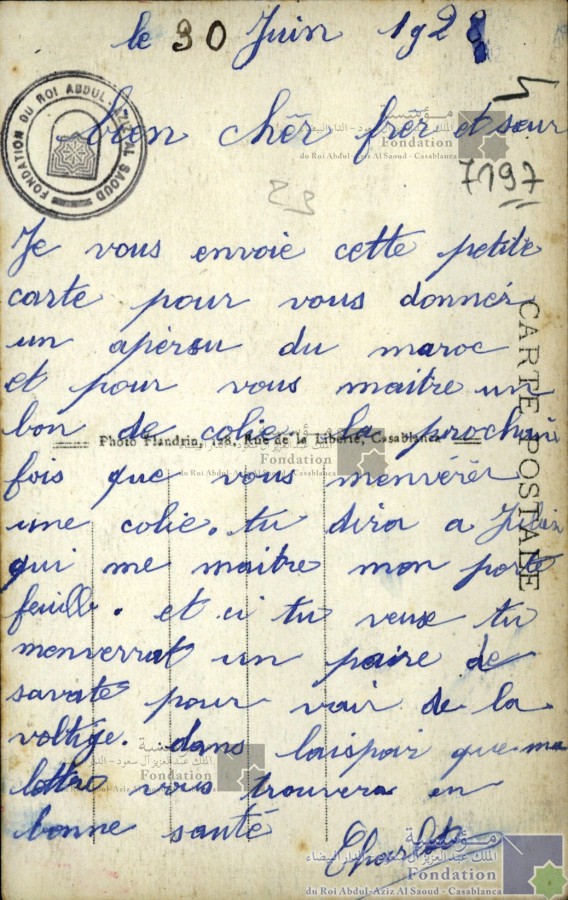 le 30 Juin 192
bien cher frer et sœur
7197
Je vous envoie cette petite
carte pour vous donner
un apersu du maroc
et pour vous maitre un
bon de colie. la prochaine
fois que vous menvérér
une colie. tu dira a
qui me maitre mon porte
feuille. et ci tu veux tu
menverrat un paire de
savate pour vair de la
voltige. dans laispair que ma
lettre vous trouvera en
bonne santé
Charlot
CARTE POSTALE
Photo Flandrin, 128, Rue de la Liberté, Casablanca
FONDATION DU ROI ABDUL-AZIZ AL SAOUD
مؤسسة
الملك عبدالعزيز آل سعود - الدار البيضاء
Fondation
du Roi Abdul-Aziz Al Saoud - Casablanca
Fondation
du Roi Abdul-Aziz Al Saoud - Casablanca
مؤسسة
الملك عبدالعزيز آل سعود - الدار البيضاء
Fondation
du Roi Abdul-Aziz Al Saoud - Casablanca
مؤسسة
الملك عبدالعزيز آل سعود - الدار البيضاء
Fondation
du Roi Abdul-Aziz Al Saoud - Casablanca